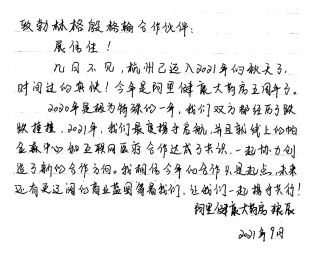 致勃林格殷格翰合作伙伴：
展信佳！
几日不见，杭州已迈入2021年的秋天了，
时间过的真快！今年是阿里健康大药房五周年了。
2020年是极为特殊的一年，我们双方都经历了跌
跌撞撞，2021年，我们最重携手启航，并且就线上的帕
金森中心和互联网医疗合作达成了共识，一起协力创
造了新的合作方向。我相信今年的合作只是起点，未来
还有更辽阔的商业蓝图等着我们，让我们一起携手共行！
阿里健康大药房
2021年9月